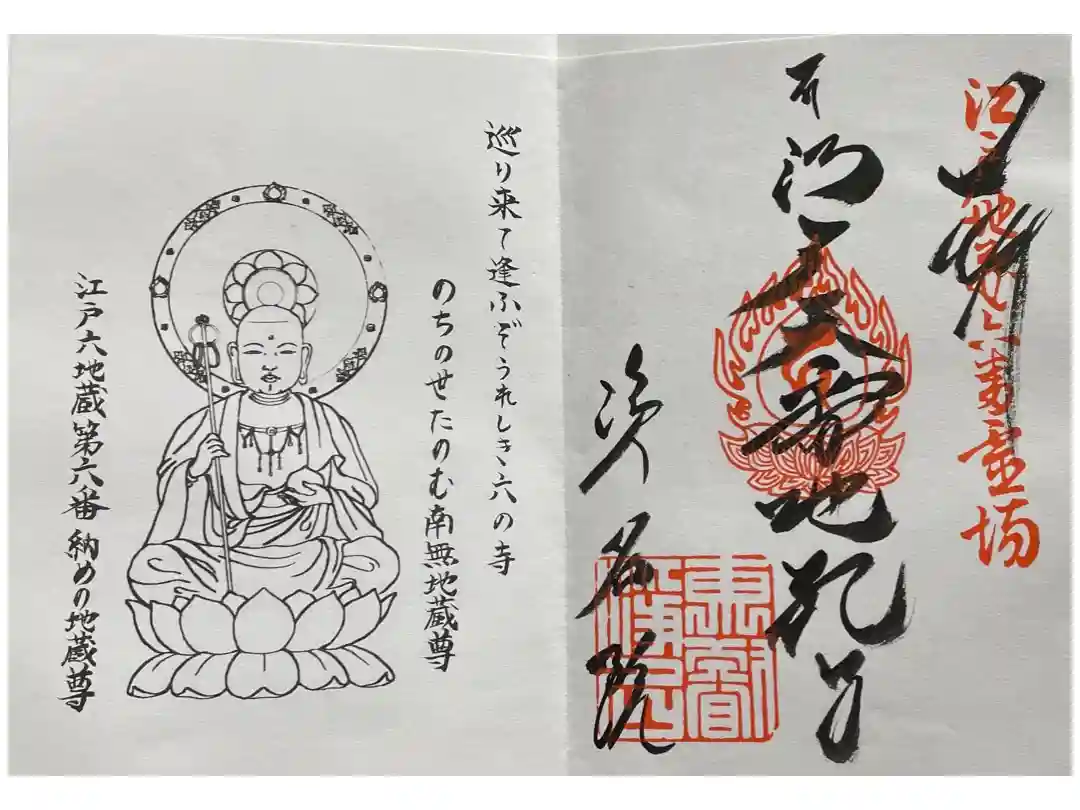 江戸地蔵六番霊場
江戸六番地蔵尊
浄名院
東叡
浄名院
巡り来て逢ふぞうれしき六の寺
のちのせたのむ南無地蔵尊
江戸六地蔵第六番 納めの地蔵尊